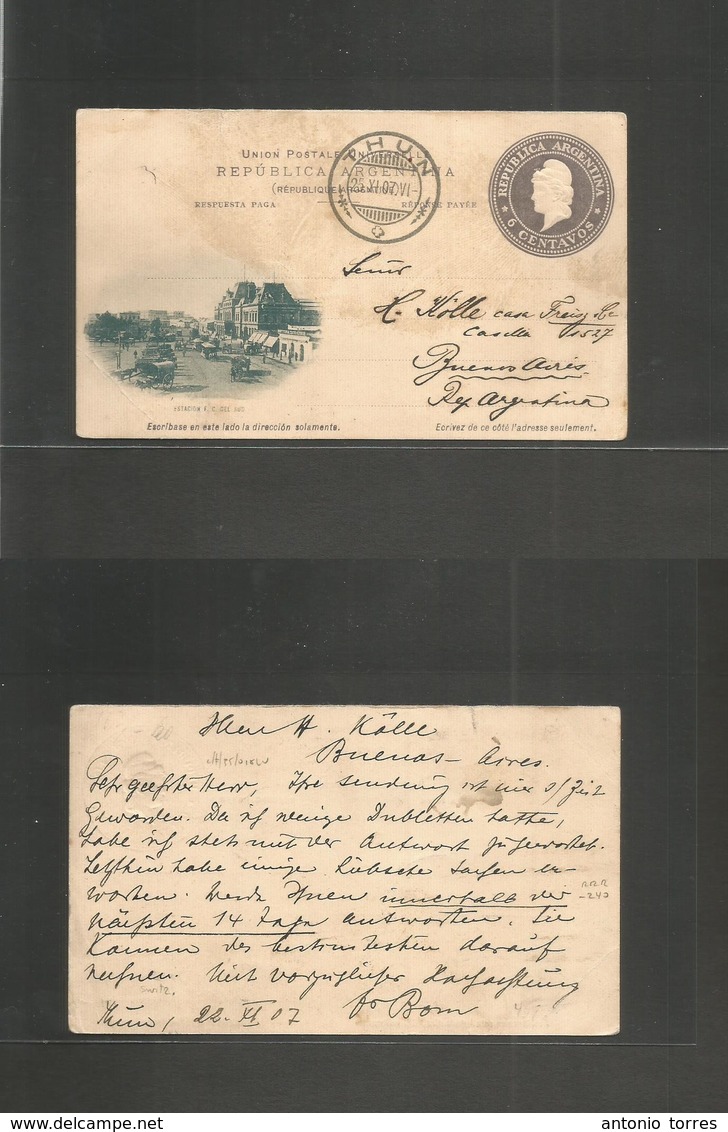 UNION POSTALE UNIVERSELLE
REPÚBLICA ARGENTINA
(RÉPUBLIQUE ARGENTINE)
RESPUESTA PAGA RÉPONSE PAYÉE
THUN
25.XI.07.VI-
REPUBLICA ARGENTINA
* 6 CENTAVOS *
Señor
H. Kölle casa
Casilla 1527
Buenos Aires
Rep Argentina
ESTACION F. C. DEL SUD
Escríbase en este lado la dirección solamente.
Ecrivez de ce côté l'adresse seulement.
Herrn H. Kölle
Buenos-Aires.
Sehr geehrter Herr, Ihre sendung ist mir s/Zeit
Geworden. Da ich wenige Dubletten hatte,
habe ich stets mit der Antwort zugewartet.
Letzthin habe einige hübsche sachen er-
worben. Werde Ihnen innerhalb der
nächsten 14 Tage antworten. Sie
Können des bestimmtesten darauf
rechnen. Mit vorzüglicher Hochachtung
Switz.
Thun, 22. XI 07
www.delcampe.net
antonio torres